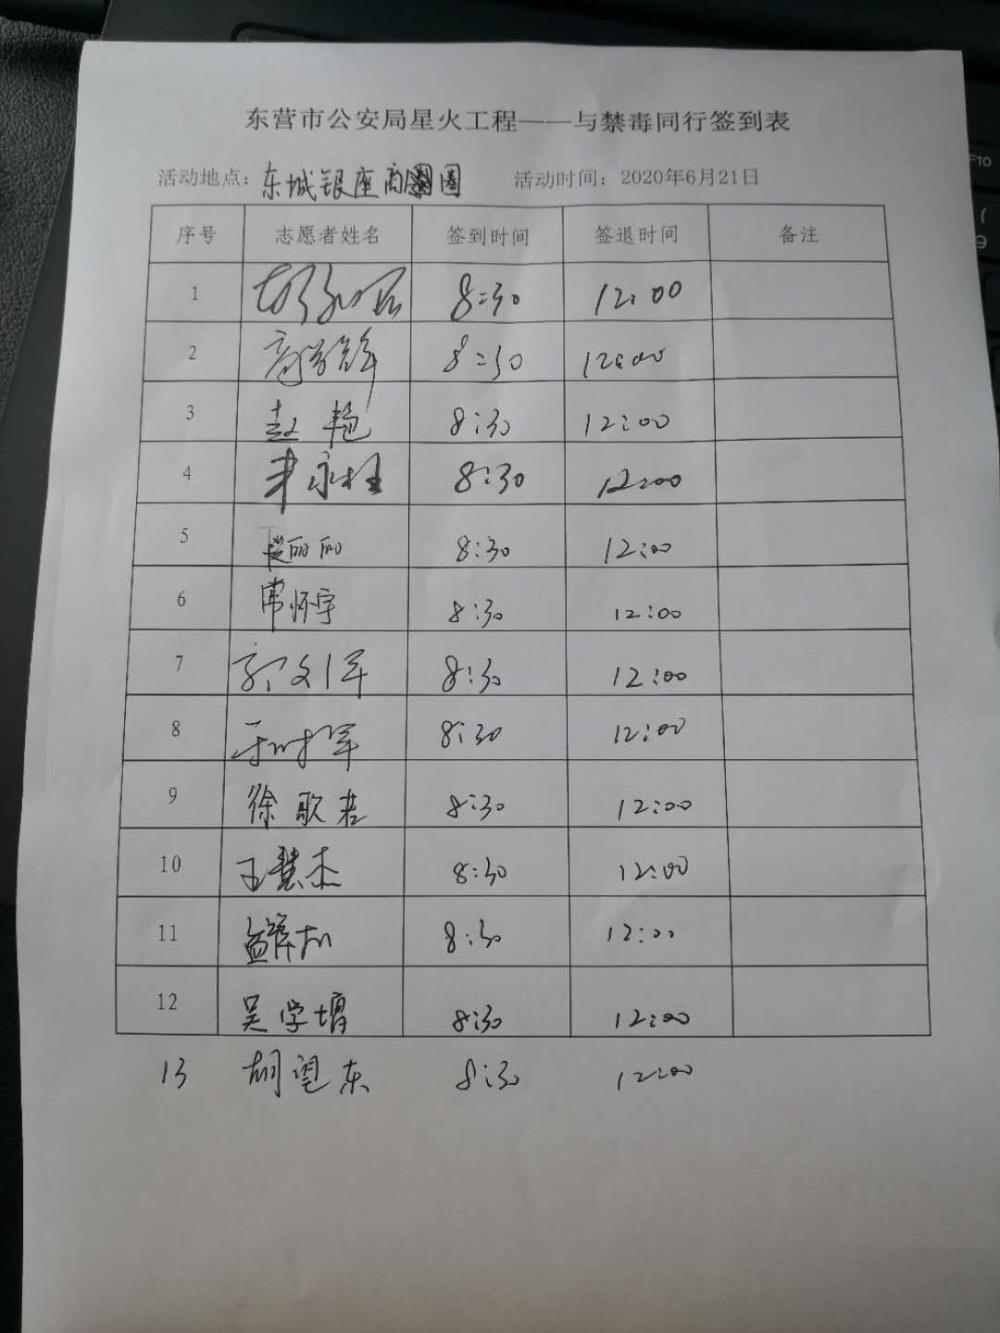 东营市公安局星火工程——与禁毒同行签到表
活动地点：东城银座商圈 活动时间：2020年6月21日
序号 志愿者姓名 签到时间 签退时间 备注
1 8:30 12:00
2 8:30 12:00
3 赵艳 8:30 12:00
4 永柱 8:30 12:00
5 丽丽 8:30 12:00
6 常怀宇 8:30 12:00
7 郭文军 8:30 12:00
8 8:30 12:00
9 徐歌若 8:30 12:00
10 王慧杰 8:30 12:00
11 8:30 12:00
12 吴学增 8:30 12:00
13 胡望东 8:30 12:00
F10
(
9